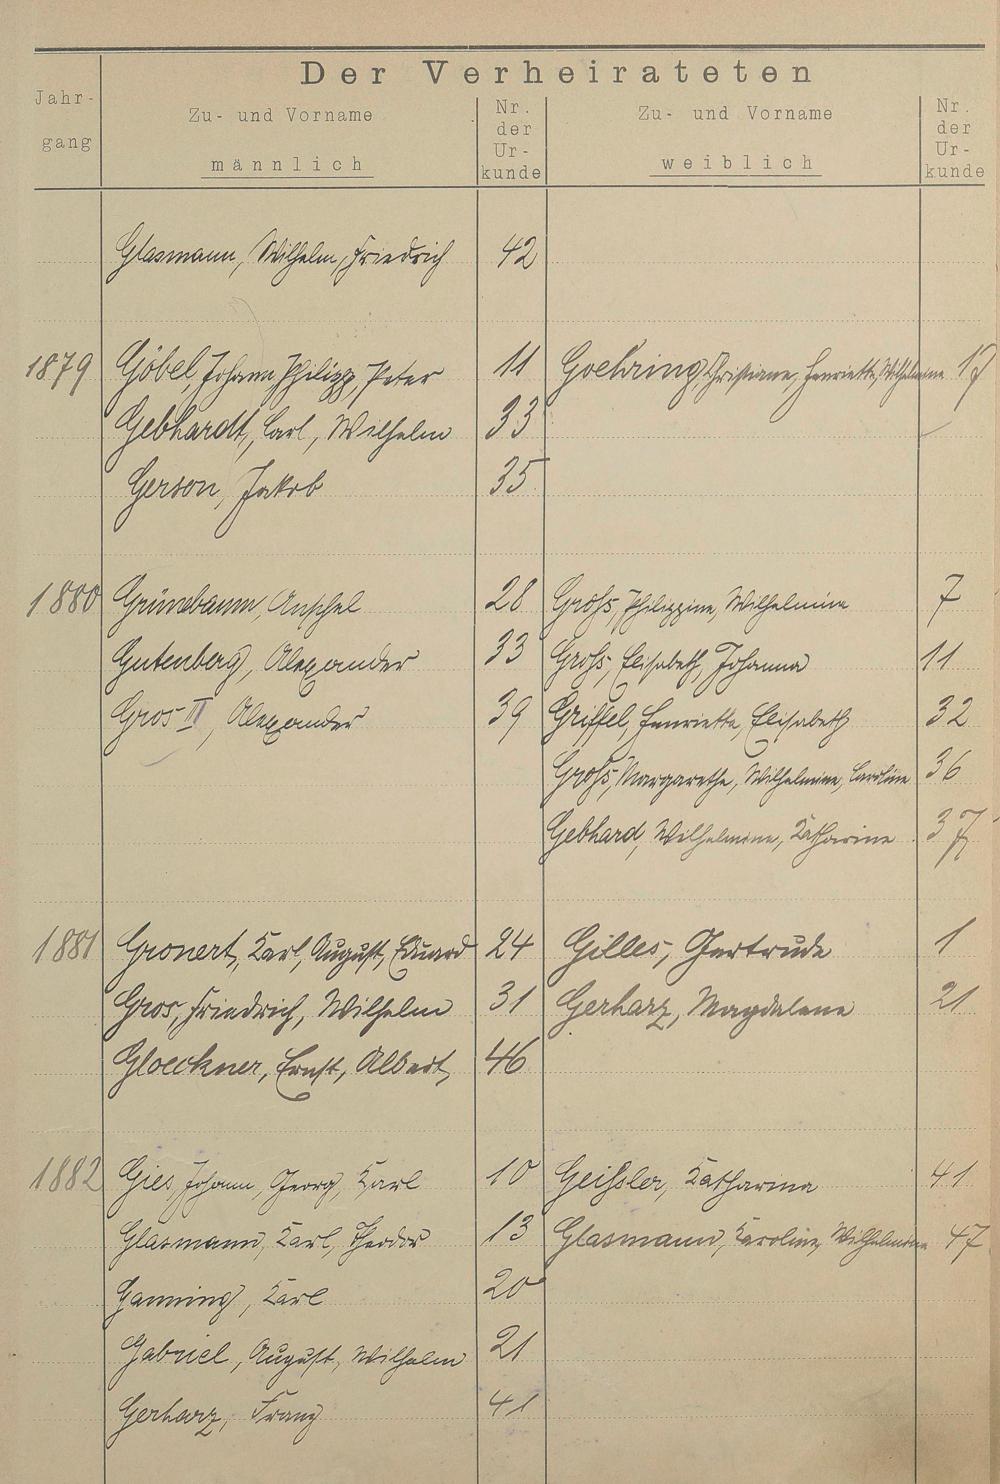 Der Verheirateten
Jahr-
gang
Zu- und Vorname
männlich
Nr.
der
Ur-
kunde
Zu- und Vorname
weiblich
Nr.
der
Ur-
kunde
Glasmann, Wilhelm, Friedrich 42
1879 Göbel, Johann Philipp, Peter 11 Goehring, Christiane, Henriette, Wilhelmine 17
Gebhardt, Carl, Wilhelm 33
Gerson, Jakob 35
1880 Grünebaum, Anschel 28 Groß, Philippine, Wilhelmine 7
Gutenberg, Alexander 33 Groß, Elisabeth, Johanna 11
Gros II, Alexander 39 Griffel, Henriette, Elisabeth 32
Groß, Margarethe, Wilhelmine, Caroline 36
Gebhard, Wilhelmine, Katharine 37
1881 Gronert, Karl, August, Eduard 24 Gilles, Gertrude 1
Gros, Friedrich, Wilhelm 31 Gerharz, Magdalene 21
Gloeckner, Ernst, Albert, 46
1882 Gies, Johann, Georg, Karl 10 Geißler, Katharina 41
Glasmann, Karl, Theodor 13 Glasmann, Karoline, Wilhelmine 47
Ganning, Karl 20
Gabriel, August, Wilhelm 21
Gerharz, Franz 41